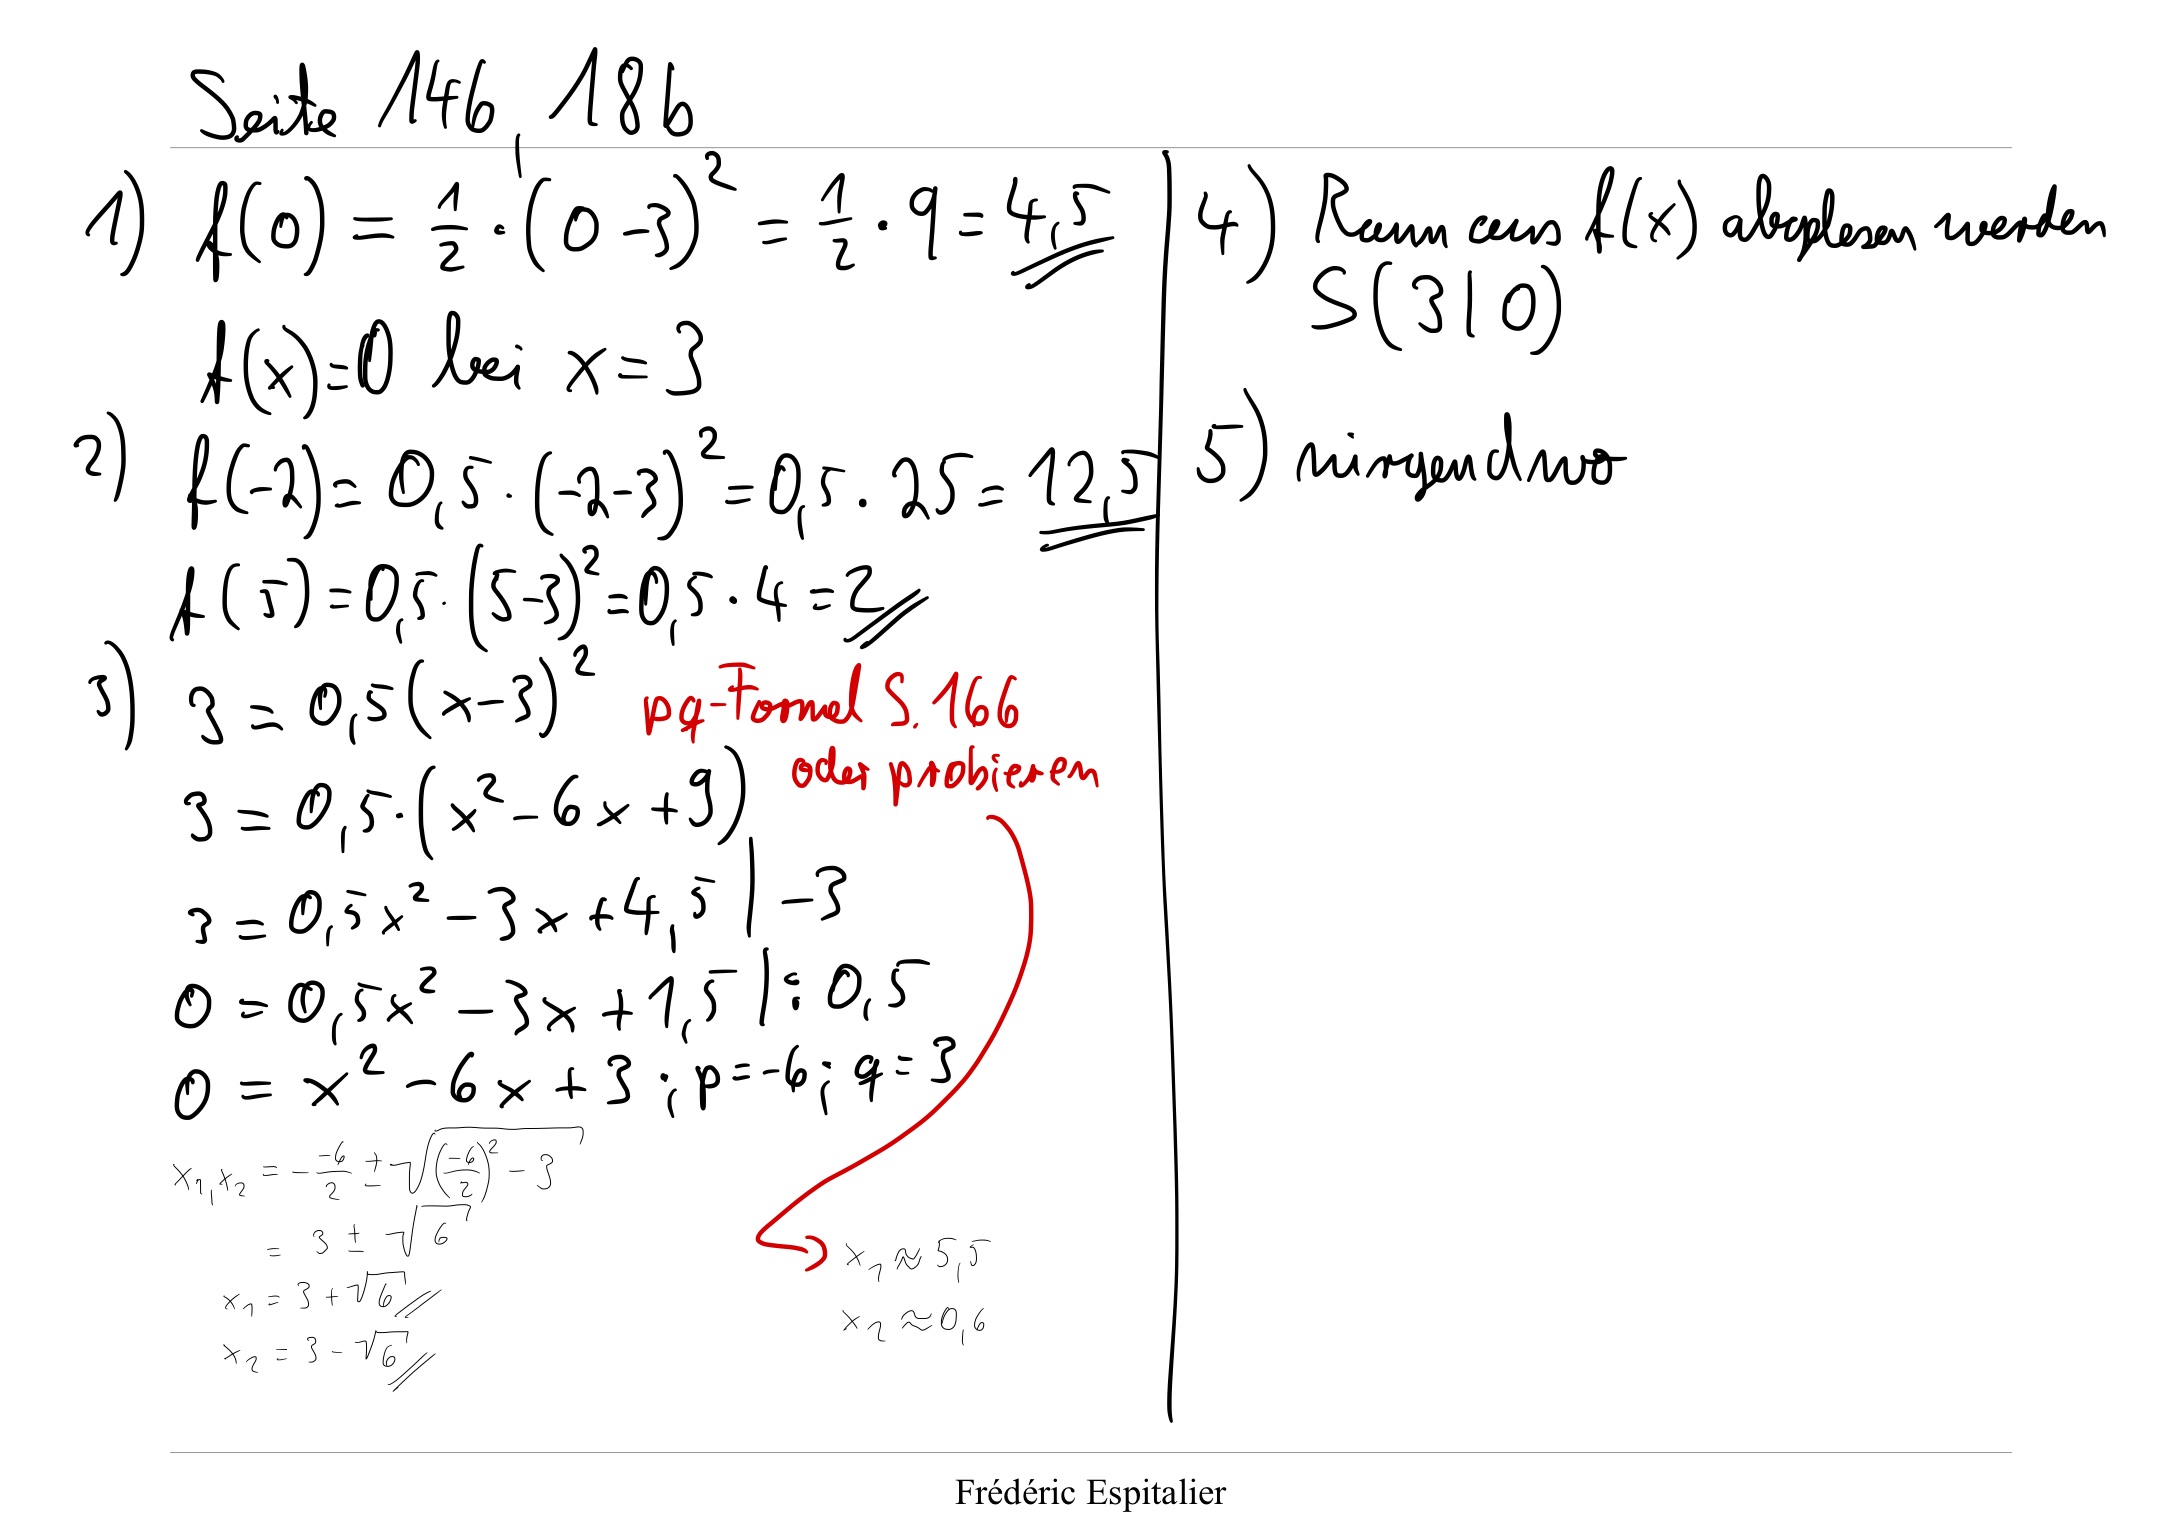 Seite 146, 18b
1) f(0) = 1/2 · (0-3)² = 1/2 · 9 = 4,5
f(x)=0 bei x=3
2) f(-2) = 0,5 · (-2-3)² = 0,5 · 25 = 12,5
f(5) = 0,5 · (5-3)² = 0,5 · 4 = 2
3) 3 = 0,5(x-3)² pq-Formel S. 166
oder probieren
3 = 0,5 · (x² - 6x + 9)
3 = 0,5x² - 3x + 4,5 | -3
0 = 0,5x² - 3x + 1,5 | : 0,5
0 = x² - 6x + 3 ; p = -6 ; q = 3
x₁,x₂ = - -6/2 ± √((-6/2)² - 3)
= 3 ± √6
x₁ = 3 + √6
x₂ = 3 - √6
x₁ ≈ 5,5
x₂ ≈ 0,6
4) Kann aus f(x) abgelesen werden
S(3|0)
5) nirgendwo
Frédéric Espitalier